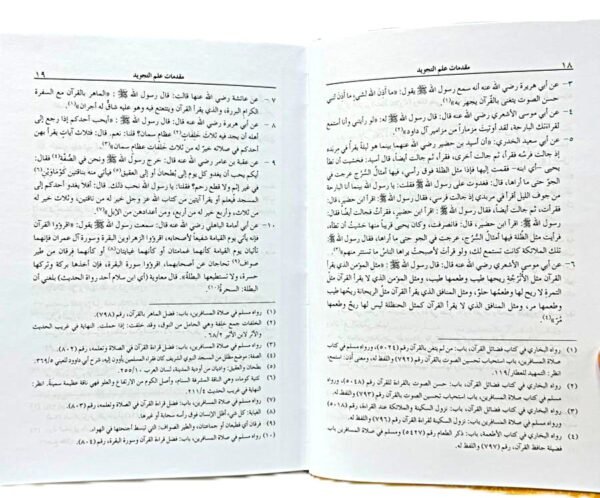 ١٨ مقدمات علم التجويد
٣ - عن أبي هريرة رضي الله عنه أنه سمع رسول الله ﷺ يقول: «ما أذن الله لشيء ما أذن لنبي
حسن الصوت يتغنى بالقرآن يجهر به»(١).
٤ - عن أبي موسى الأشعري رضي الله عنه قال: قال رسول الله ﷺ: «لو رأيتني وأنا أستمع
لقراءتك البارحة، لقد أوتيت مزماراً من مزامير آل داود»(٢).
٥ - عن أبي سعيد الخدري: «أن أسيد بن حضير رضي الله عنهما بينما هو ليلةً يقرأ في مربده
إذ جالت فرسه فقرأ، ثم جالت أخرى، فقرأ، ثم جالت أيضاً، قال أسيد: فخشيت أن تطأ
يحيى -أي ابنه- فقمت إليها فإذا مثل الظلة فوق رأسي، فيها أمثال السُّرُج عرجت في
الجوِّ حتى ما أراها، قال: فغدوت على رسول الله ﷺ فقلت: يا رسول الله بينما أنا البارحة
في جوف الليل أقرأ في مربدي إذ جالت فرسي، فقال رسول الله ﷺ: اقرأ ابن حضير، قال:
فقرأتُ، ثم جالت أيضاً، فقال رسول الله ﷺ: اقرأ ابن حضير، قال: فقرأت، ثم جالت
أيضاً، فقال رسول الله ﷺ: اقرأ ابن حضير، قال: فانصرفت، وكان يحيى قريباً منها خشيتُ أن تطأه،
فرأيت مثل الظلة فيها أمثالُ السُّرُج، عرجت في الجو حتى ما أراها، فقال رسول الله ﷺ:
تلك الملائكة كانت تستمع لك، ولو قرأتَ لأصبحتْ يراها الناسُ ما تستتر منهم»(٣).
٦ - عن أبي موسى الأشعري رضي الله عنه قال: قال رسول الله ﷺ: «مثل المؤمن الذي يقرأ
القرآن مثل الأُتْرُجَّة ريحها طيب وطعمها طيب، ومثل المؤمن الذي لا يقرأ القرآن مثل
التمرة لا ريح لها وطعمها حلوٌ، ومثل المنافق الذي يقرأ القرآن مثل الريحانة ريحها طيب
وطعمها مر، ومثل المنافق الذي لا يقرأ القرآن كمثل الحنظلة ليس لها ريح وطعمها
مُرّ»(٤).
(١) رواه البخاري في كتاب فضائل القرآن، باب: من لم يتغن بالقرآن رقم (٥٠٢٤)، ورواه مسلم في كتاب
صلاة المسافرين، باب استحباب تحسين الصوت بالقرآن رقم (٧٩٢) واللفظ له، ومعنى أذن: استمع،
(٢) رواه البخاري في كتاب فضائل القرآن، باب: حسن الصوت بالقراءة للقرآن رقم (٥٠٤٨)، ورواه
مسلم في كتاب صلاة المسافرين، باب: استحباب تحسين الصوت بالقرآن رقم (٧٩٣) واللفظ له.
(٣) رواه البخاري في كتاب فضائل القرآن، باب: نزول السكينة والملائكة عند القراءة، رقم (٥٠١٨)
(٤) رواه البخاري في كتاب الأطعمة، باب: ذكر الطعام رقم (٥٤٢٧) ومسلم في صلاة المسافرين باب
فضيلة حافظ القرآن، رقم (٧٩٧) واللفظ له.
مقدمات علم التجويد ١٩
٧ - عن عائشة رضي الله عنها قالت: قال رسول الله ﷺ: «الماهر بالقرآن مع السفرة
الكرام البررة، والذي يقرأ القرآن ويتتعتع فيه وهو عليه شاقٌّ له أجران»(١).
٨ - عن أبي هريرة رضي الله عنه قال: قال رسول الله ﷺ: «أيحب أحدكم إذا رجع إلى
أهله أن يجد فيه ثلاث خَلِفات(٢) عظام سمان؟ قلنا: نعم. قال: فثلاث آيات يقرأ بهن
أحدكم في صلاته خيرٌ له من ثلاث خلفات عظام سمان»(٣).
٩ - عن عقبة بن عامر رضي الله عنه قال: خرج رسول الله ﷺ ونحن في الصُّفَّة(٤) فقال:
«أيكم يحب أن يغدو كل يوم إلى بُطحان أو إلى العقيق(٥) فيأتي منه بناقتين كَوْماوَيْنِ(٦)
في غير إثم ولا قطع رحم؟ فقلنا: يا رسول الله نحب ذلك. قال: أفلا يغدو أحدكم إلى
المسجد فيعلم أو يقرأ آيتين من كتاب الله عز وجل خير له من ناقتين، وثلاث خير له
من ثلاث، وأربع خير له من أربع، ومن أعدادهن من الإبل».
١٠ - عن أبي أمامة الباهلي رضي الله عنه قال: سمعت رسول الله ﷺ يقول: «اقرؤوا القرآن
فإنه يأتي يوم القيامة شفيعاً لأصحابه، اقرؤوا الزهراوين البقرة وسورة آل عمران فإنهما
تأتيان يوم القيامة كأنهما غمامتان أو كأنهما غيايتان(٨) أو كأنهما فرقان من طير
صواف(٩) تحاجان عن أصحابهما، اقرؤوا سورة البقرة، فإن أخذها بركة وتركها
حسرة، ولا تستطيعها البطلة». قال معاوية (أي ابن سلام أحد رواة الحديث) بلغني أن
البطلة: السحرة(١٠).
(١) رواه مسلم في صلاة المسافرين، باب: فضل الماهر بالقرآن رقم (٧٩٨).
(٣) رواه مسلم في صلاة المسافرين، باب: فضل قراءة القرآن في الصلاة وتعلمه، رقم (٨٠٢).
(١٠) رواه مسلم في صلاة المسافرين، باب: فضل قراءة القرآن وسورة البقرة، رقم (٨٠٤).